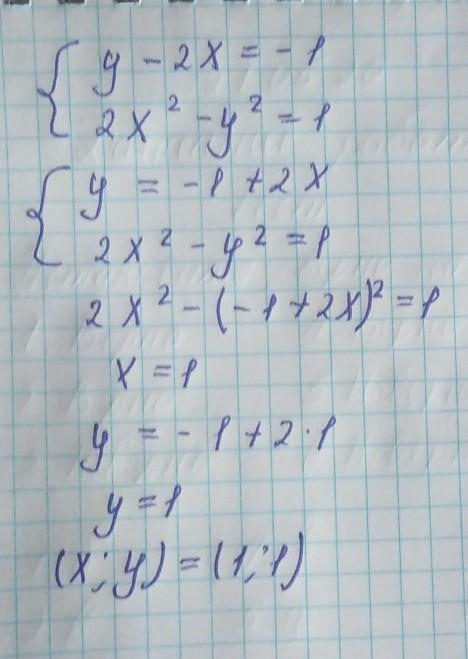 y - 2x = -1
2x² - y² = 1
y = -1 + 2x
2x² - y² = 1
2x² - (-1 + 2x)² = 1
x = 1
y = -1 + 2 · 1
y = 1
(x; y) = (1; 1)